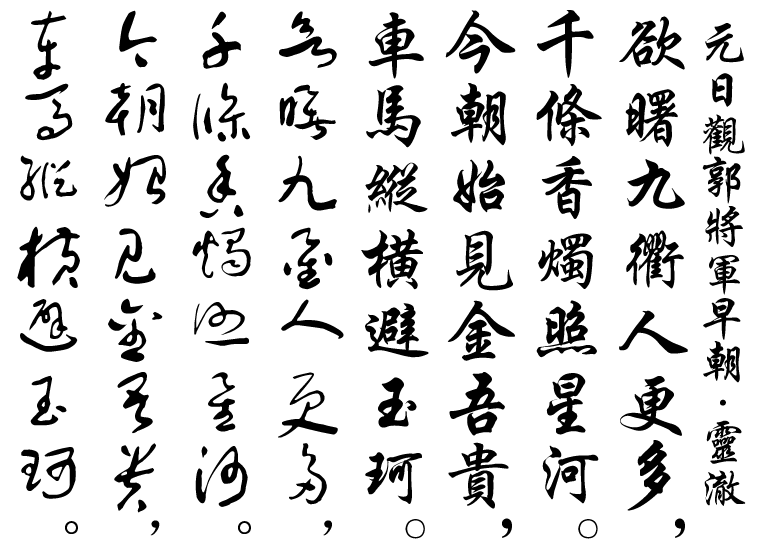 元日觀郭將軍早朝・靈澈
欲曙九衢人更多，
千條香燭照星河。
今朝始見金吾貴，
車馬縱橫避玉珂。
欲曙九衢人更多，
千條香燭照星河。
今朝始見金吾貴，
車馬縱橫避玉珂。